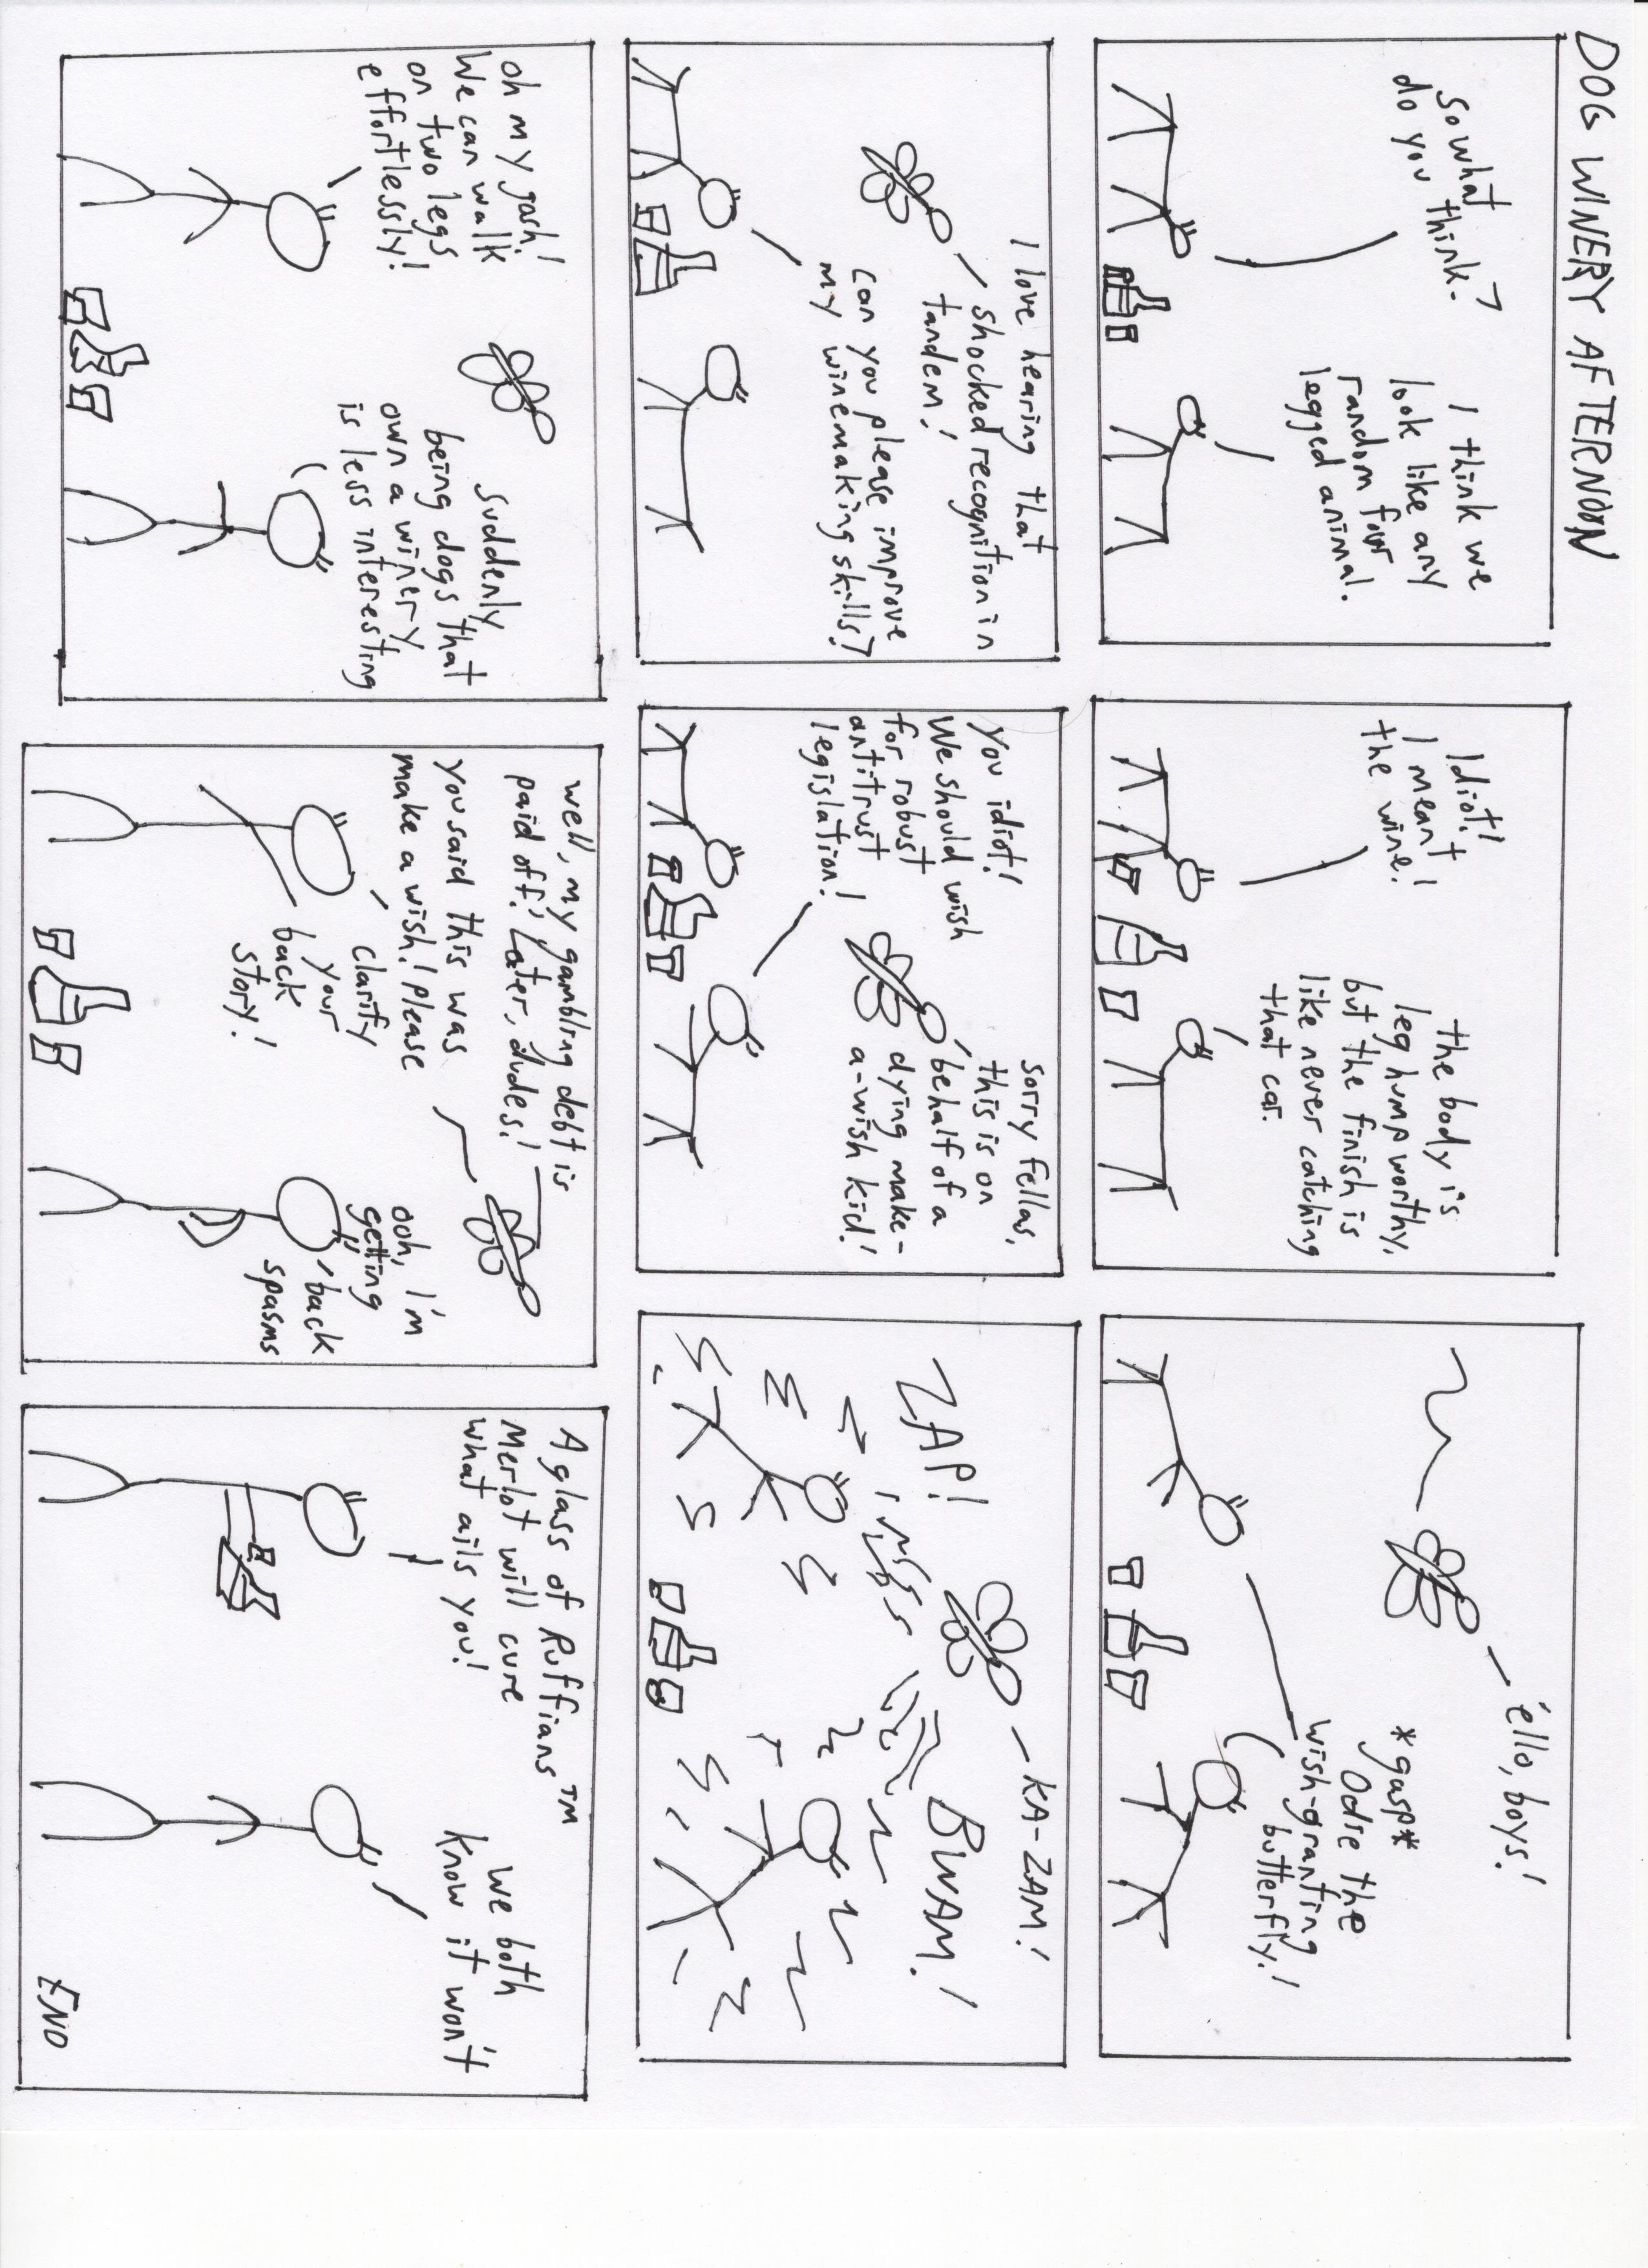 DOG WINERY AFTERNOON
So what
do you think?
I think we
look like any
random four
legged animal.
Idiot!
I meant
the wine.
the body is
leg hump worthy,
but the finish is
like never catching
that car.
'ello, boys!
*gasp*
Odie the
wish-granting
butterfly!
I love hearing that
shocked recognition in
tandem!
can you please improve
my winemaking skills?
You idiot!
We should wish
for robust
antitrust
legislation!
sorry fellas,
this is on
behalf of a
dying make-
a-wish kid!
KA-ZAM!
ZAP!
BWAM!
oh my gosh!
We can walk
on two legs
effortlessly!
suddenly
being dogs that
own a winery
is less interesting
well, my gambling debt is
paid off! Later, dudes!
You said this was
make a wish! please
clarify
your
back
story!
ooh, I'm
getting
back
spasms
A glass of Ruffians™
Merlot will cure
what ails you!
we both
know it won't
END